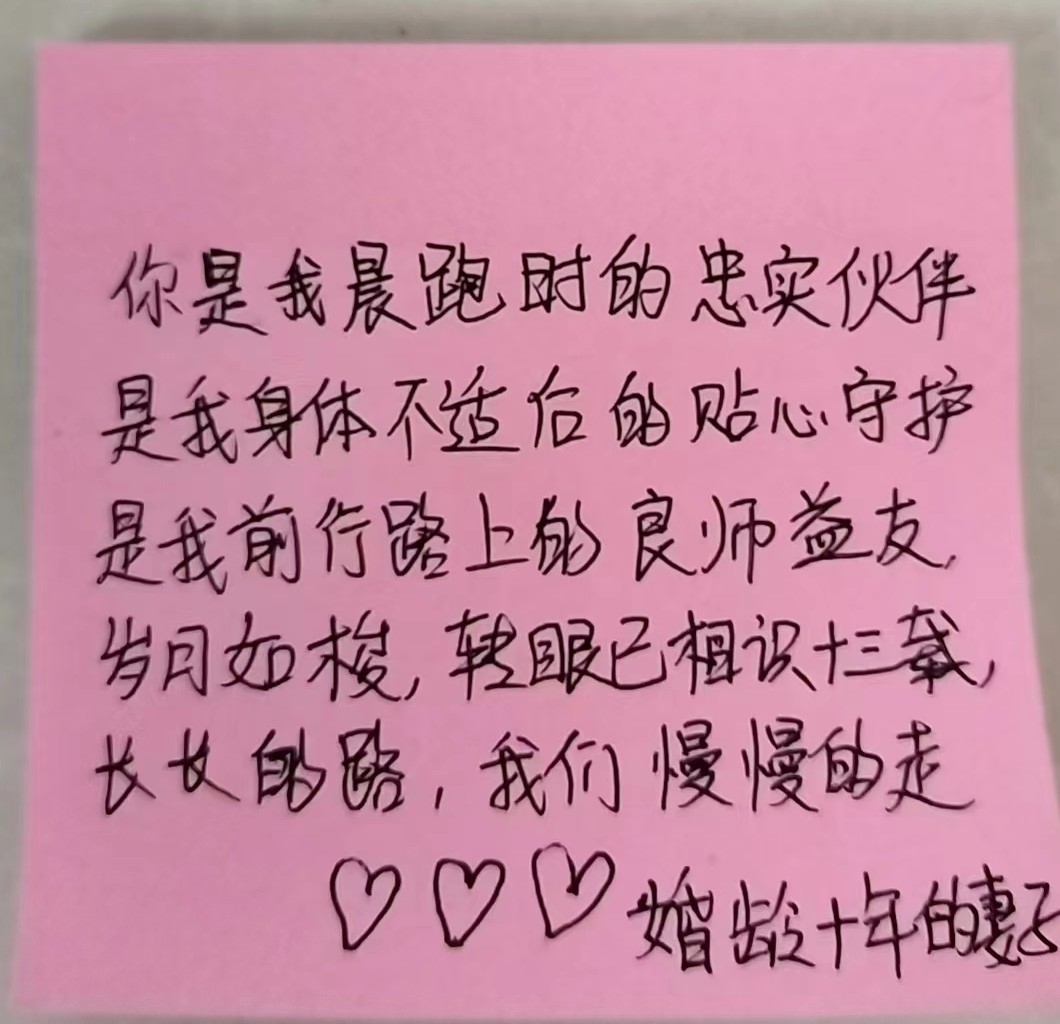 你是我晨跑时的忠实伙伴
是我身体不适后的贴心守护
是我前行路上的良师益友,
岁月如梭,转眼已相识十三载,
长长的路,我们慢慢的走
♡♡♡婚龄十年的妻子